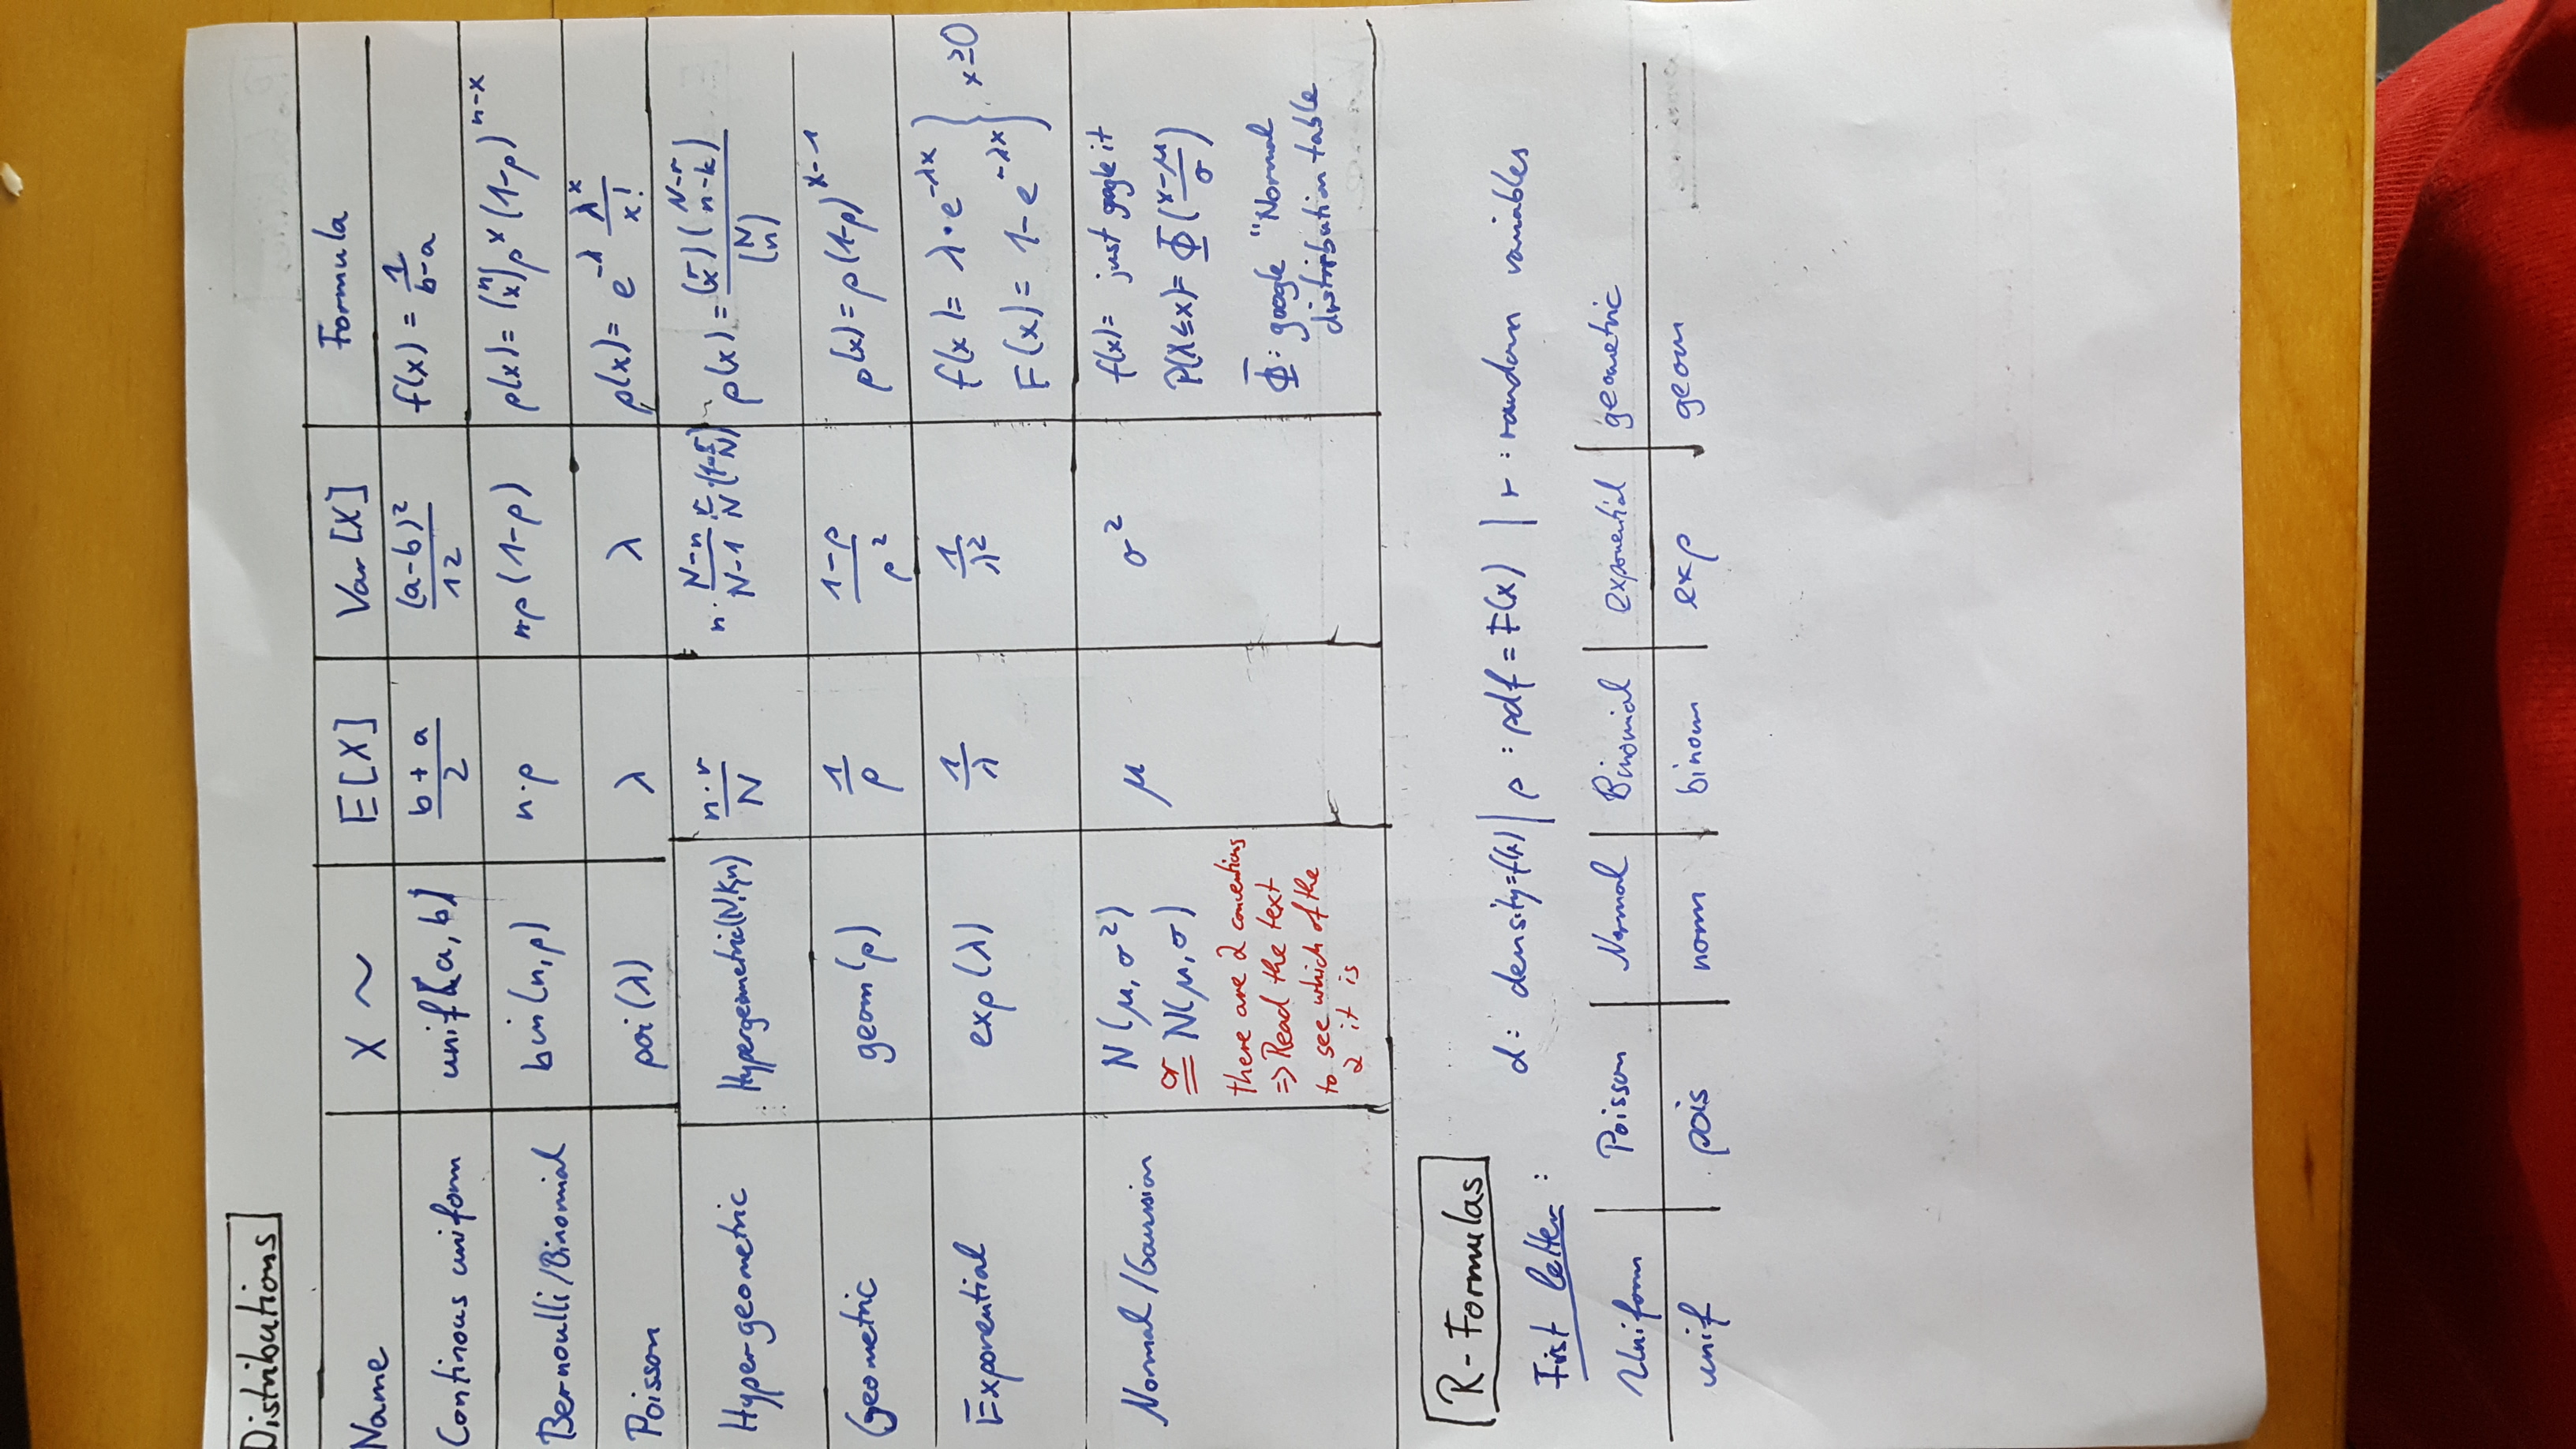 Distributions
Name | X ~ | E[X] | Var[X] | Formula
Continous uniform | unif[a, b] | (b + a)/2 | (a-b)²/12 | f(x) = 1/(b-a)
Bernoulli/Binomial | bin(n,p) | n·p | np(1-p) | p(x) = (n x) p^x (1-p)^(n-x)
Poisson | poi(λ) | λ | λ | p(x) = e^(-λ) λ^x/x!
Hypergeometric | Hypergeometric(N,K,n) | n·r/N | n · (N-n)/(N-1) · r/N · (1-r/N) | p(x) = (r x)(N-r n-k)/(N n)
Geometric | geom(p) | 1/p | (1-p)/p² | p(x) = p(1-p)^(x-1)
Exponential | exp(λ) | 1/λ | 1/λ² | f(x) = λ·e^(-λx) } x≥0
F(x) = 1-e^(-λx)
Normal/Gaussian | N(μ, σ²) | μ | σ² | f(x) = just google it
or N(μ, σ) | P(X≤x) = Φ((x-μ)/σ)
there are 2 conventions
=> Read the text
to see which of the
2 it is
Φ: google "Normal
distribution table
R-Formulas
First letter: d: density=f(x) | p: pdf = F(x) | r: random variables
Uniform | Poisson | Normal | Binomial | exponential | geometric
unif | pois | norm | binom | exp | geom